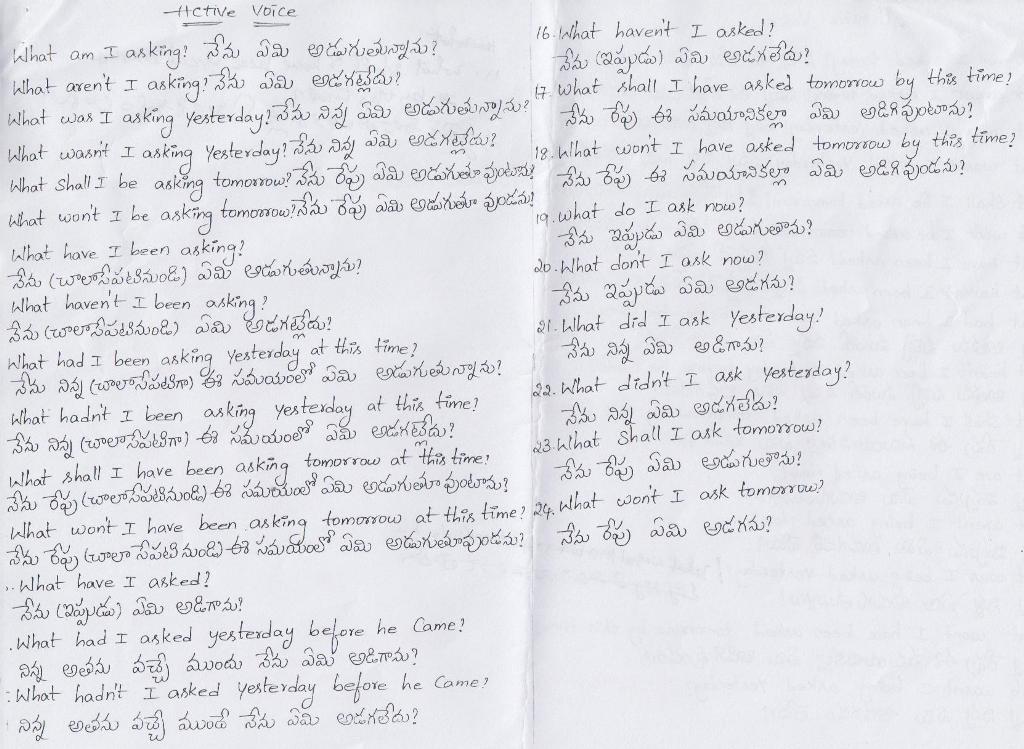 Active Voice
What am I asking? నేను ఏమి అడుగుతున్నాను?
What aren't I asking? నేను ఏమి అడగట్లేదు?
What was I asking yesterday? నేను నిన్న ఏమి అడుగుతున్నాను?
What wasn't I asking yesterday? నేను నిన్న ఏమి అడగట్లేదు?
What shall I be asking tomorrow? నేను రేపు ఏమి అడుగుతూ వుంటాను?
What won't I be asking tomorrow? నేను రేపు ఏమి అడుగుతూ వుండను?
What have I been asking?
నేను (చాలాసేపటినుండి) ఏమి అడుగుతున్నాను?
What haven't I been asking?
నేను (చాలాసేపటినుండి) ఏమి అడగట్లేదు?
What had I been asking yesterday at this time?
నేను నిన్న (చాలాసేపటిగా) ఈ సమయంలో ఏమి అడుగుతున్నాను?
What hadn't I been asking yesterday at this time?
నేను నిన్న (చాలాసేపటిగా) ఈ సమయంలో ఏమి అడగట్లేదు?
What shall I have been asking tomorrow at this time?
నేను రేపు (చాలాసేపటినుండి) ఈ సమయంలో ఏమి అడుగుతూ వుంటాను?
What won't I have been asking tomorrow at this time?
నేను రేపు (చాలాసేపటినుండి) ఈ సమయంలో ఏమి అడుగుతూవుండను?
What have I asked?
నేను (ఇప్పుడు) ఏమి అడిగాను?
What had I asked yesterday before he came?
నిన్న అతను వచ్చే ముందు నేను ఏమి అడిగాను?
What hadn't I asked yesterday before he came?
నిన్న అతను వచ్చే ముందే నేను ఏమి అడగలేదు?
16. What haven't I asked?
నేను (ఇప్పుడు) ఏమి అడగలేదు?
17. What shall I have asked tomorrow by this time?
నేను రేపు ఈ సమయానికల్లా ఏమి అడిగివుంటాను?
18. What won't I have asked tomorrow by this time?
నేను రేపు ఈ సమయానికల్లా ఏమి అడిగివుండను?
19. What do I ask now?
నేను ఇప్పుడు ఏమి అడుగుతాను?
20. What don't I ask now?
నేను ఇప్పుడు ఏమి అడగను?
21. What did I ask yesterday?
నేను నిన్న ఏమి అడిగాను?
22. What didn't I ask yesterday?
నేను నిన్న ఏమి అడగలేదు?
23. What shall I ask tomorrow?
నేను రేపు ఏమి అడుగుతాను?
24. What won't I ask tomorrow?
నేను రేపు ఏమి అడగను?